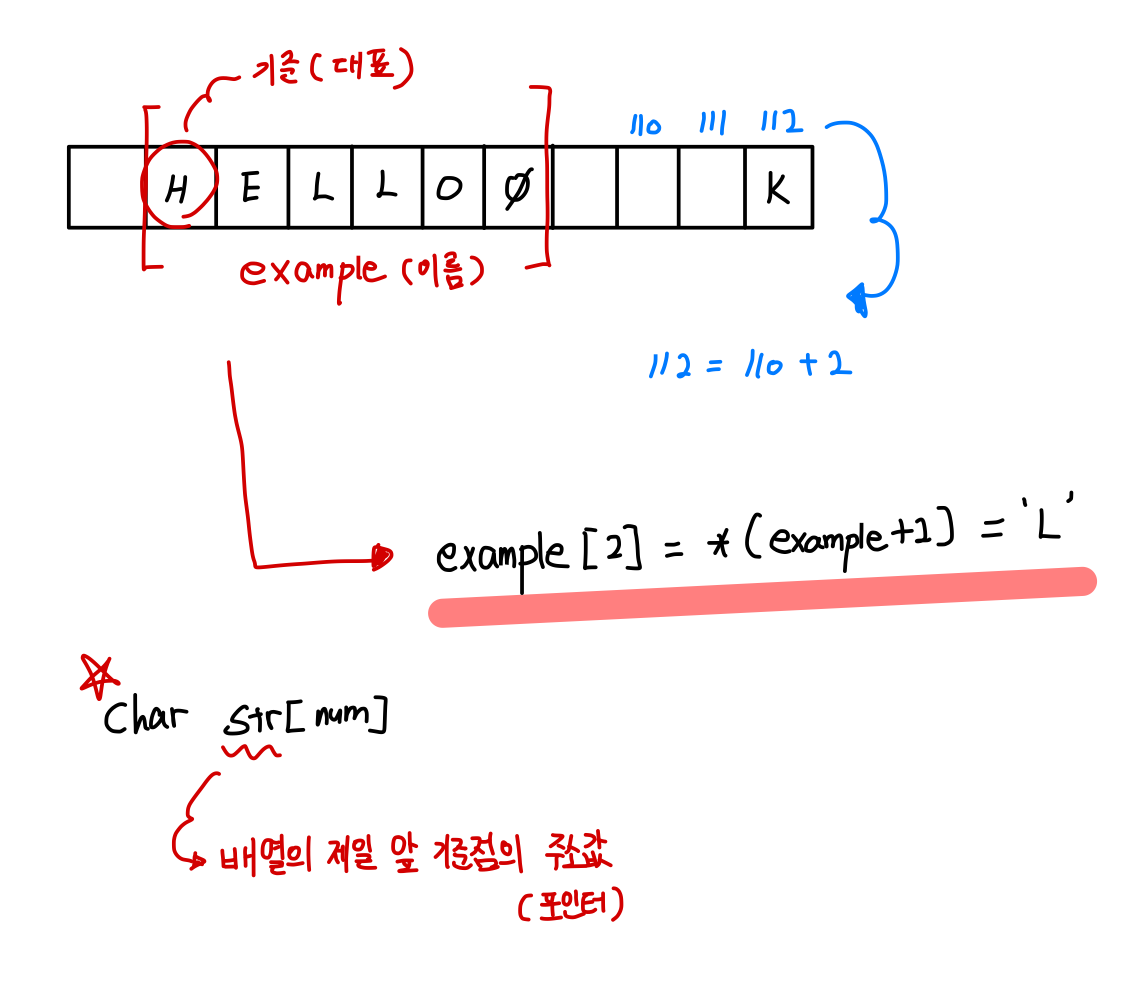 기준(대표)
110 111 112
H E L L O Ø K
example (이름)
112 = 110 + 2
example [2] = *(example+1) = 'L'
Char str[num]
배열의 제일 앞 기준점의 주소값
(포인터)